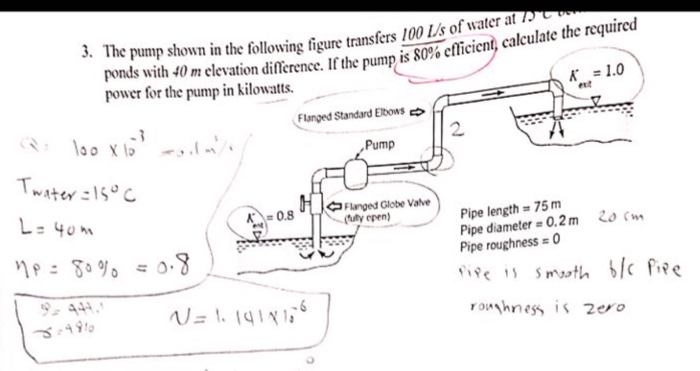 3. The pump shown in the following figure transfers 100 L/s of water at 15°C
ponds with 40 m elevation difference. If the pump is 80% efficient, calculate the required
power for the pump in kilowatts.
K exit = 1.0
Flanged Standard Elbows
2
Pump
Q= 100 x 10^-3
Twater = 15°C
L = 40 m
ηp = 80% = 0.8
K ent = 0.8
Flanged Globe Valve
(fully open)
Pipe length = 75 m
Pipe diameter = 0.2 m 20 cm
Pipe roughness = 0
Pipe is smooth b/c Pipe
roughness is zero
ν = 1.141 x 10^-6